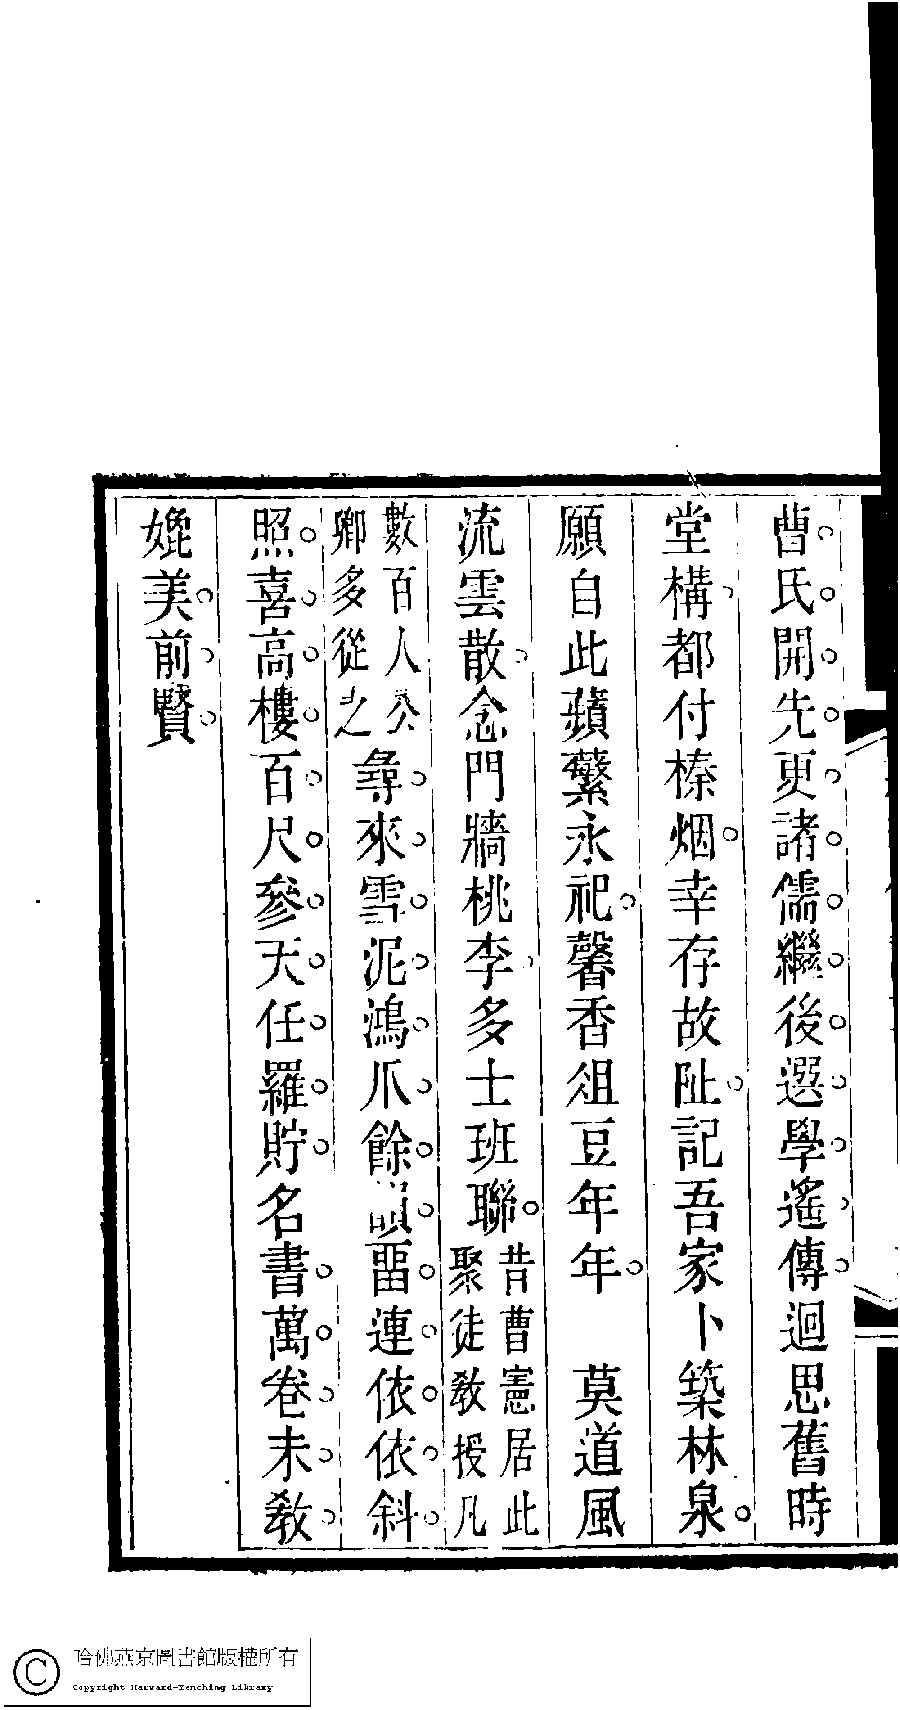 曹氏開先更諸儒繼後選學遙傳迴思舊時
堂構都付榛烟幸存故阯記吾家卜築林泉
願自此蘋蘩永祀馨香俎豆年年　莫道風
流雲散念門牆桃李多士班聯昔曹憲居此聚徒教授凡
數百人公卿多從之尋來雪泥鴻爪餘韻畱連依依斜
照喜高樓百尺參天任羅貯名書萬卷未教
媲美前賢
哈佛燕京圖書館版權所有
Copyright Harvard-Yenching Library